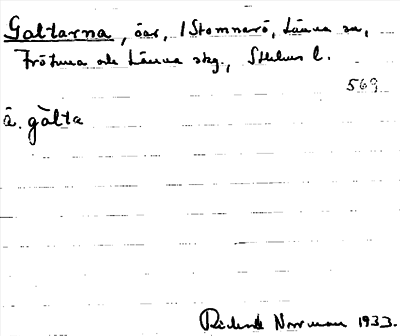 Galtarna, öar, 1 Stomnarö, Länna sn,
Frötuna och Länna skg., Sthlms l.
569
ä. gàlta
Rickard Norrman 1933.